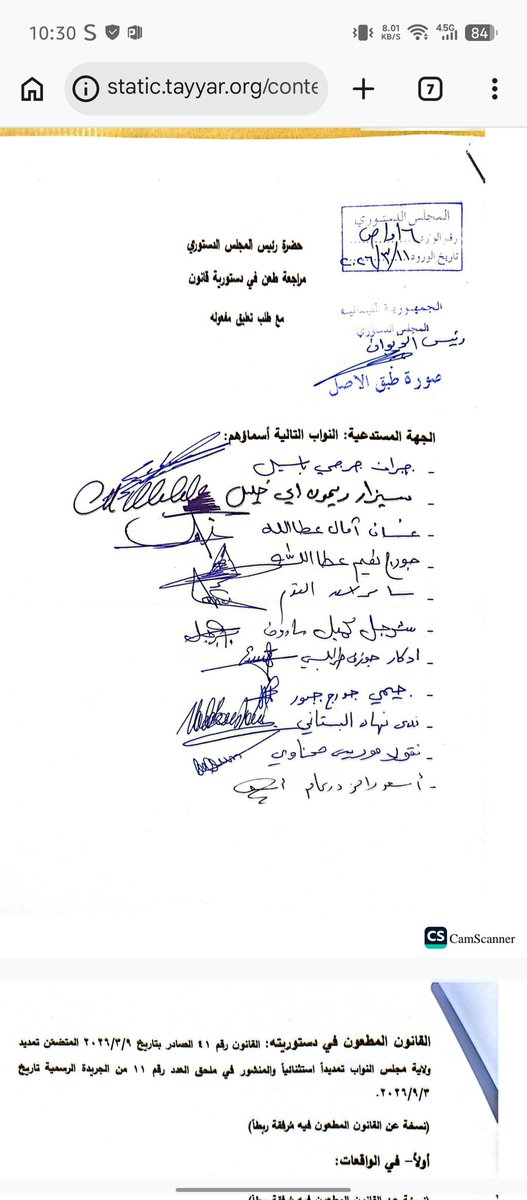 10:30
8.01 KB/S
4.5G
84
static.tayyar.org/conte
7
المجلس الدستوري
رقم الورود
تاريخ الورود ٢٠٢٦/٣/١١
حضرة رئيس المجلس الدستوري
مراجعة طعن في دستورية قانون
مع طلب تعليق مفعوله
الجمهورية اللبنانية
المجلس الدستوري
رئيس الديوان
صورة طبق الاصل
الجهة المستدعية: النواب التالية أسماؤهم:
- جبران جرجي باسيل
- سيزار ريمون ابي خليل
- غسان أمال عطالله
- جورج نعيم عطاالله
- سامر التوم
- شربل كميل مارون
- ادكار جوزف طرابلسي
- جيمي جورج جبور
- ندى نهاد البستاني
- نقولا موريس صحناوي
- أسعد رامز درغام
CS CamScanner
القانون المطعون في دستوريته: القانون رقم ٤١ الصادر بتاريخ ٢٠٢٦/٣/٩ المتضمن تمديد
ولاية مجلس النواب تمديداً استثنائياً والمنشور في ملحق العدد رقم ١١ من الجريدة الرسمية تاريخ
٢٠٢٦/٩/٣.
(نسخة عن القانون المطعون فيه مُرفقة ربطاً)
أولاً- في الواقعات: